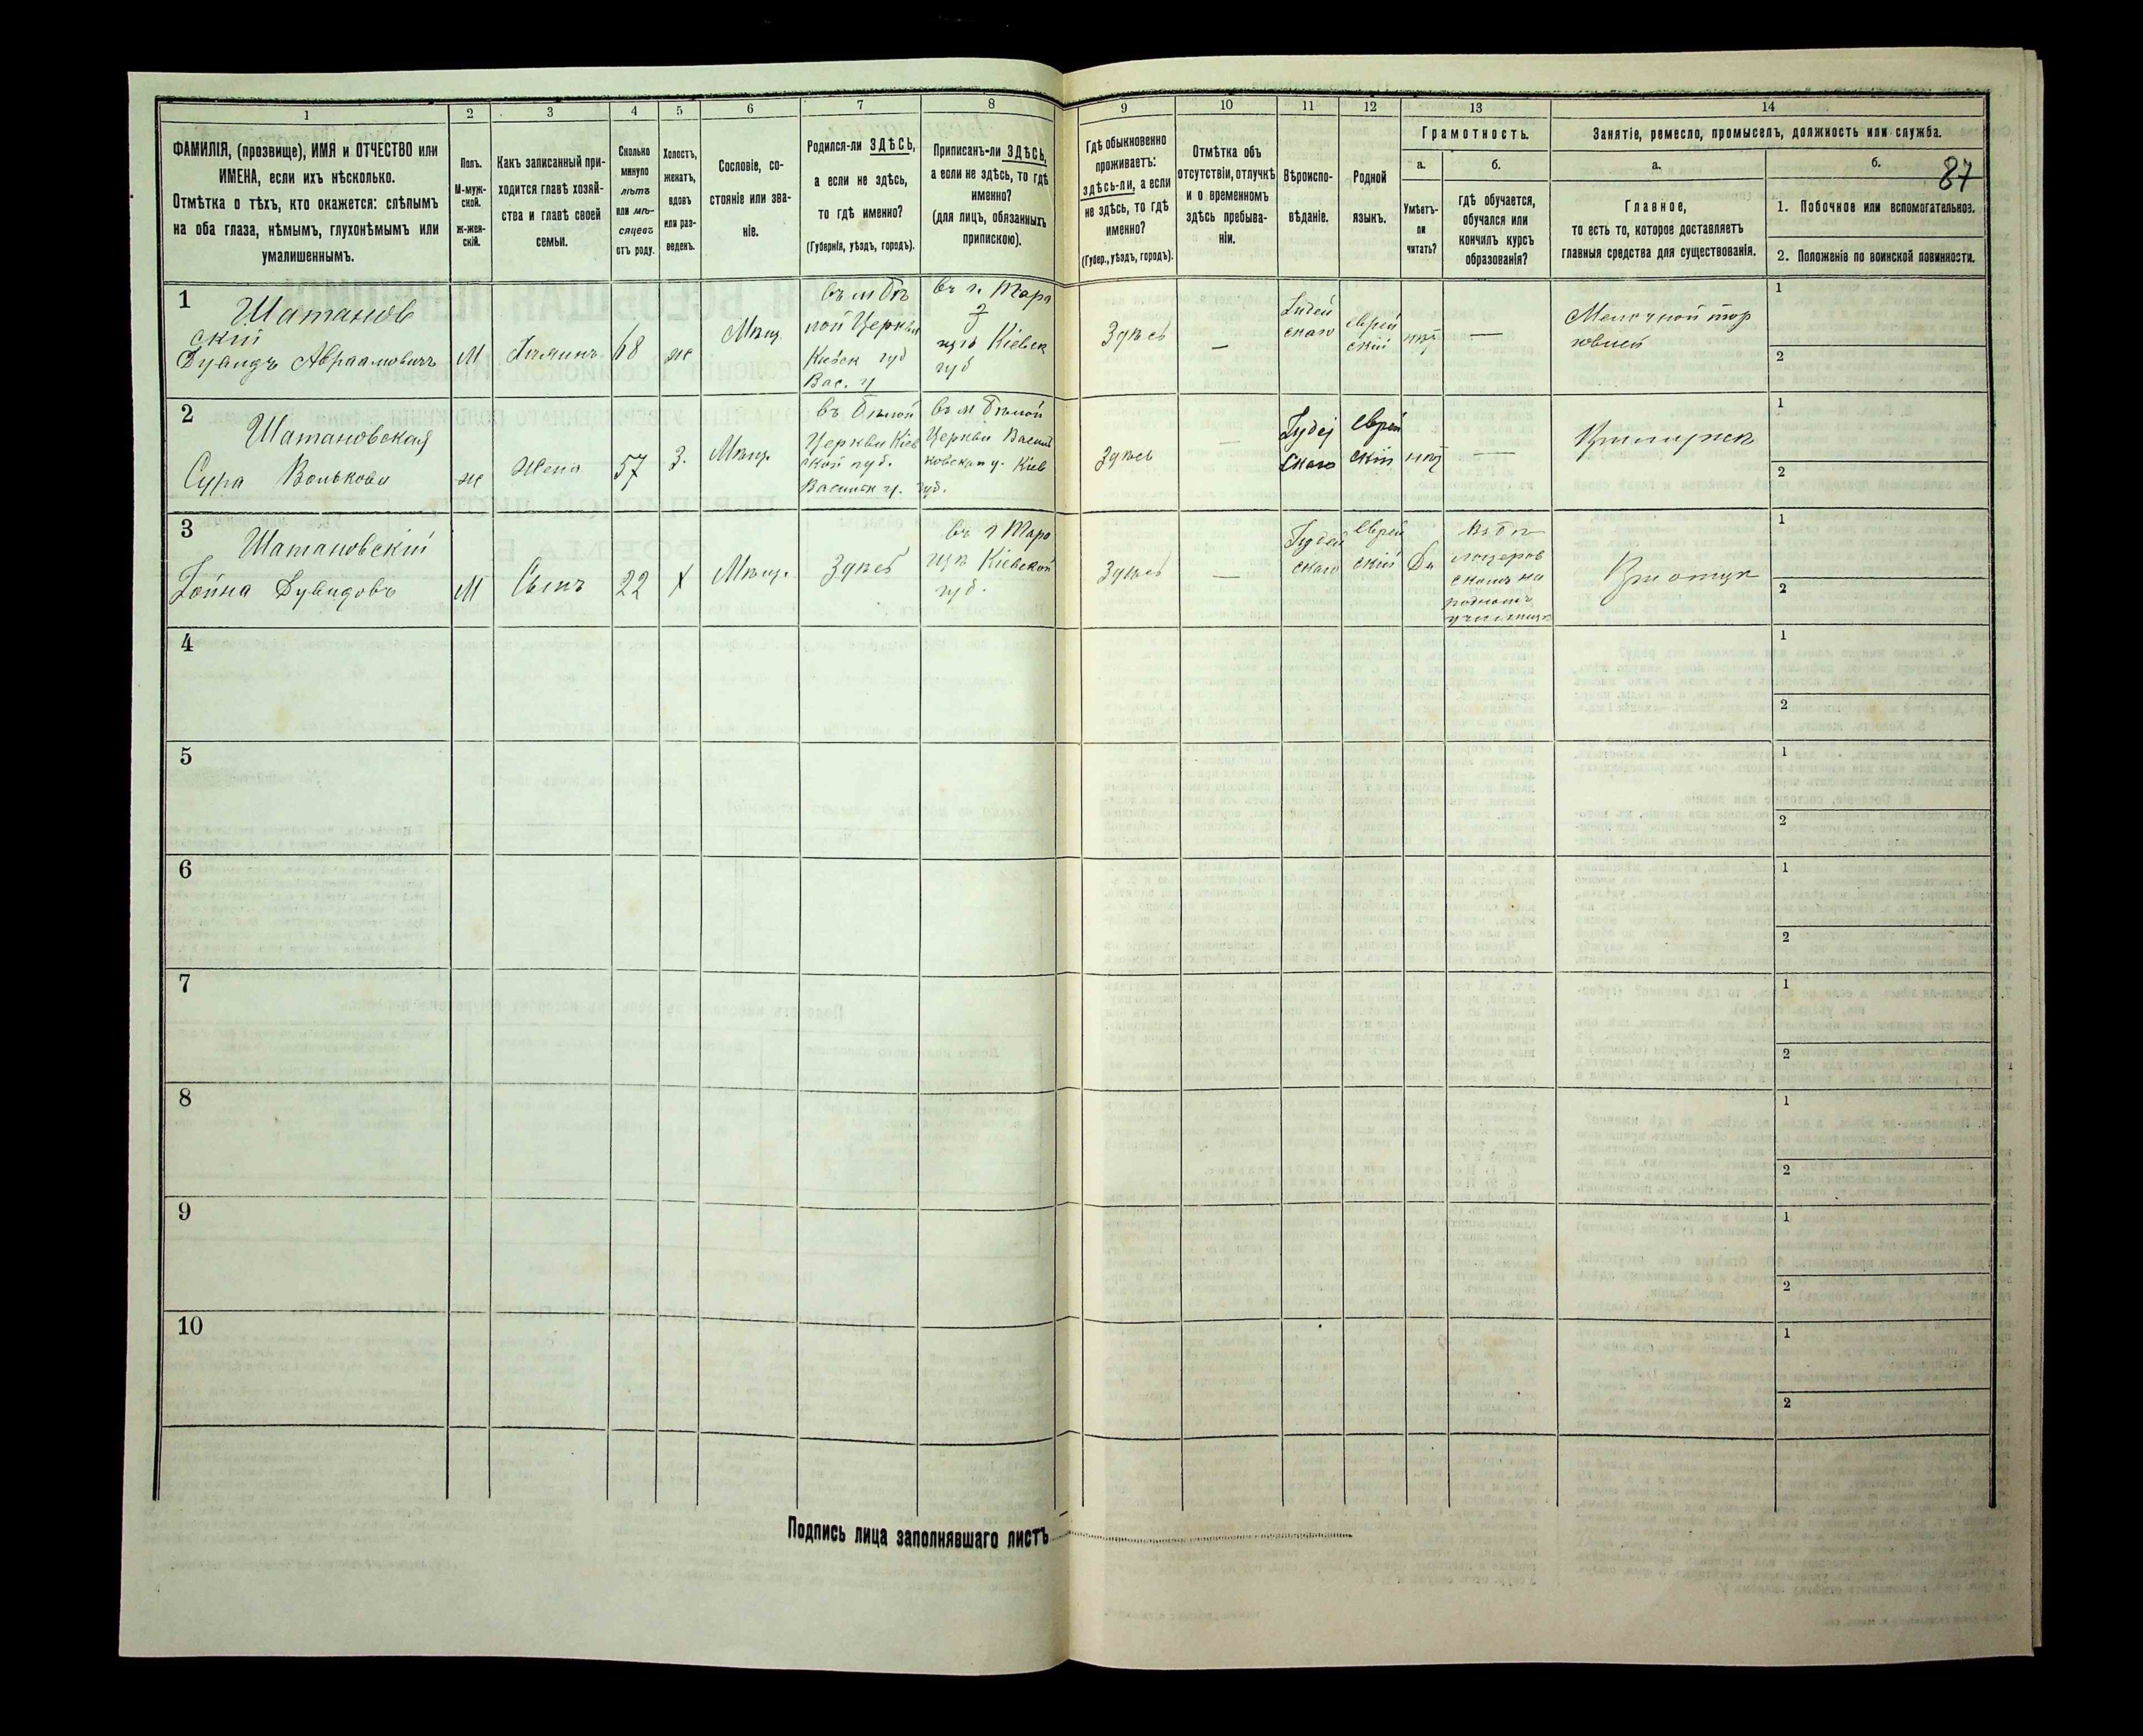 1
2
3
4
5
6
7
8
9
10
11
12
13
14
ФАМИЛІЯ, (прозвище), ИМЯ и ОТЧЕСТВО или
ИМЕНА, если ихъ нѣсколько.
Отмѣтка о тѣхъ, кто окажется: слѣпымъ
на оба глаза, нѣмымъ, глухонѣмымъ или
умалишеннымъ.
Полъ.
М-муж-
ской.
ж-жен-
скій.
Какъ записанный при-
ходится главѣ хозяй-
ства и главѣ своей
семьи.
Сколько
минуло
лѣтъ
или мѣ-
сяцевъ
отъ роду.
Холостъ,
женатъ,
вдовъ
или раз-
веденъ.
Сословіе, со-
стояніе или зва-
ніе.
Родился-ли ЗДѢСЬ,
а если не здѣсь,
то гдѣ именно?
(Губернія, уѣздъ, городъ).
Приписанъ-ли ЗДѢСЬ,
а если не здѣсь, то гдѣ
именно?
(для лицъ, обязанныхъ
припискою).
Гдѣ обыкновенно
проживаетъ:
здѣсь-ли, а если
не здѣсь, то гдѣ
именно?
(Губер., уѣздъ, городъ).
Отмѣтка объ
отсутствіи, отлучкѣ
и о временномъ
здѣсь пребыва-
ніи.
Вѣроиспо-
вѣданіе.
Родной
языкъ.
Грамотность.
а.
Умѣетъ-
ли
читать?
б.
гдѣ обучается,
обучался или
кончилъ курсъ
образованія?
Занятіе, ремесло, промыселъ, должность или служба.
а.
Главное,
то есть то, которое доставляетъ
главныя средства для существованія.
б.
87
1. Побочное или вспомогательное.
2. Положеніе по воинской повинности.
1
Шатанов
скій
Дувидъ Авраамовичъ
М
68
ж
Мѣщ.
въ м Бѣ
лой Церкви
Кіевск губ
Вас. у
въ г. Тара
щѣ Кіевск
губ
Здѣсь
—
Іудей
скаго
еврей
скій
нѣт
—
Мелочной тор
ковлей
1
2
2
Шатановская
Сура Волькова
ж
Жена
57
З.
Мѣщ.
въ Бѣлой
Церкви Кіев
ской губ.
Васильк у.
въ м Бѣлой
Церкви Васил
ковскаго у. Кіев
губ.
Здѣсь
—
Іудей
скаго
еврей
скій
нѣт
—
При мужѣ
1
2
3
Шатановскій
Іойна Дувидовъ
М
Сынъ
22
Х
Мѣщ.
Здѣсь
въ г Тара
щѣ Кіевской
губ.
Здѣсь
—
Іудей
скаго
еврей
скій
Да
въ бѣ
лоцеров
скомъ на
родномъ
училищѣ
При отцѣ
1
2
4
1
2
5
1
2
6
1
2
7
1
2
8
1
2
9
1
2
10
1
2
Подпись лица заполнявшаго листъ